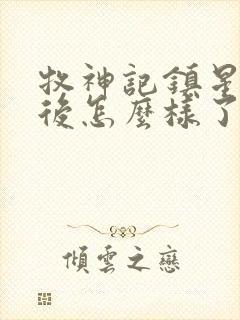 牧神記鎮星
後怎麼樣了
傾雲之戀